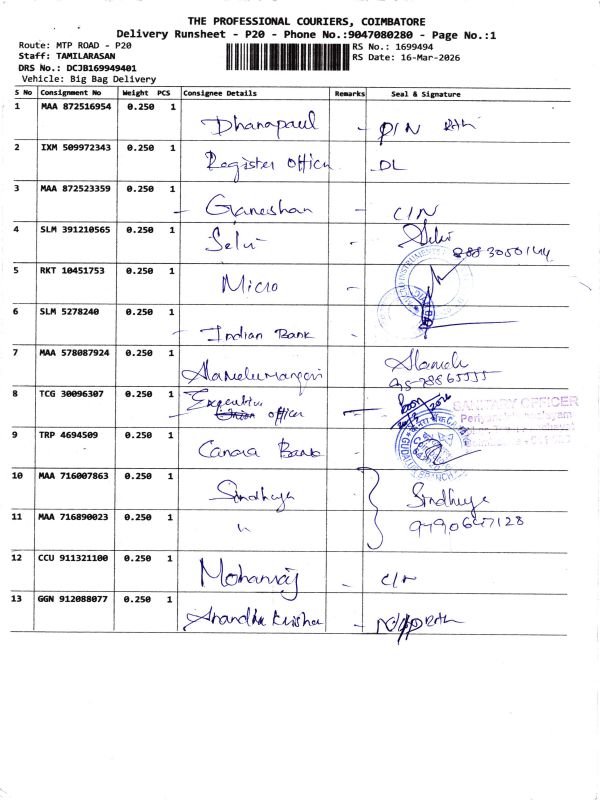 THE PROFESSIONAL COURIERS, COIMBATORE
Delivery Runsheet - P20 - Phone No.:9047080280 - Page No.:1
Route: MTP ROAD - P20
RS No.: 1699494
Staff: TAMILARASAN
RS Date: 16-Mar-2026
DRS No.: DCJB169949401
Vehicle: Big Bag Delivery
S No Consignment No Weight PCS Consignee Details Remarks Seal & Signature
1 MAA 872516954 0.250 1 Dhanapaul - P/N
2 IXM 509972343 0.250 1 Register Officer DL
3 MAA 872523359 0.250 1 - Ganeshan - C/N
4 SLM 391210565 0.250 1 Selvi - Selvi
5 RKT 10451753 0.250 1 Micro -
6 SLM 5278240 0.250 1 - Indian Bank -
7 MAA 578087924 0.250 1
8 TCG 30096307 0.250 1 Executive officer
SANITARY OFFICER
9 TRP 4694509 0.250 1 Canara Bank -
10 MAA 716007863 0.250 1 Sindhuya Sindhuya
11 MAA 716890023 0.250 1 " 9790647128
12 CCU 911321100 0.250 1 Mohanraj - C/N
13 GGN 912088077 0.250 1 Anandha Krishna -